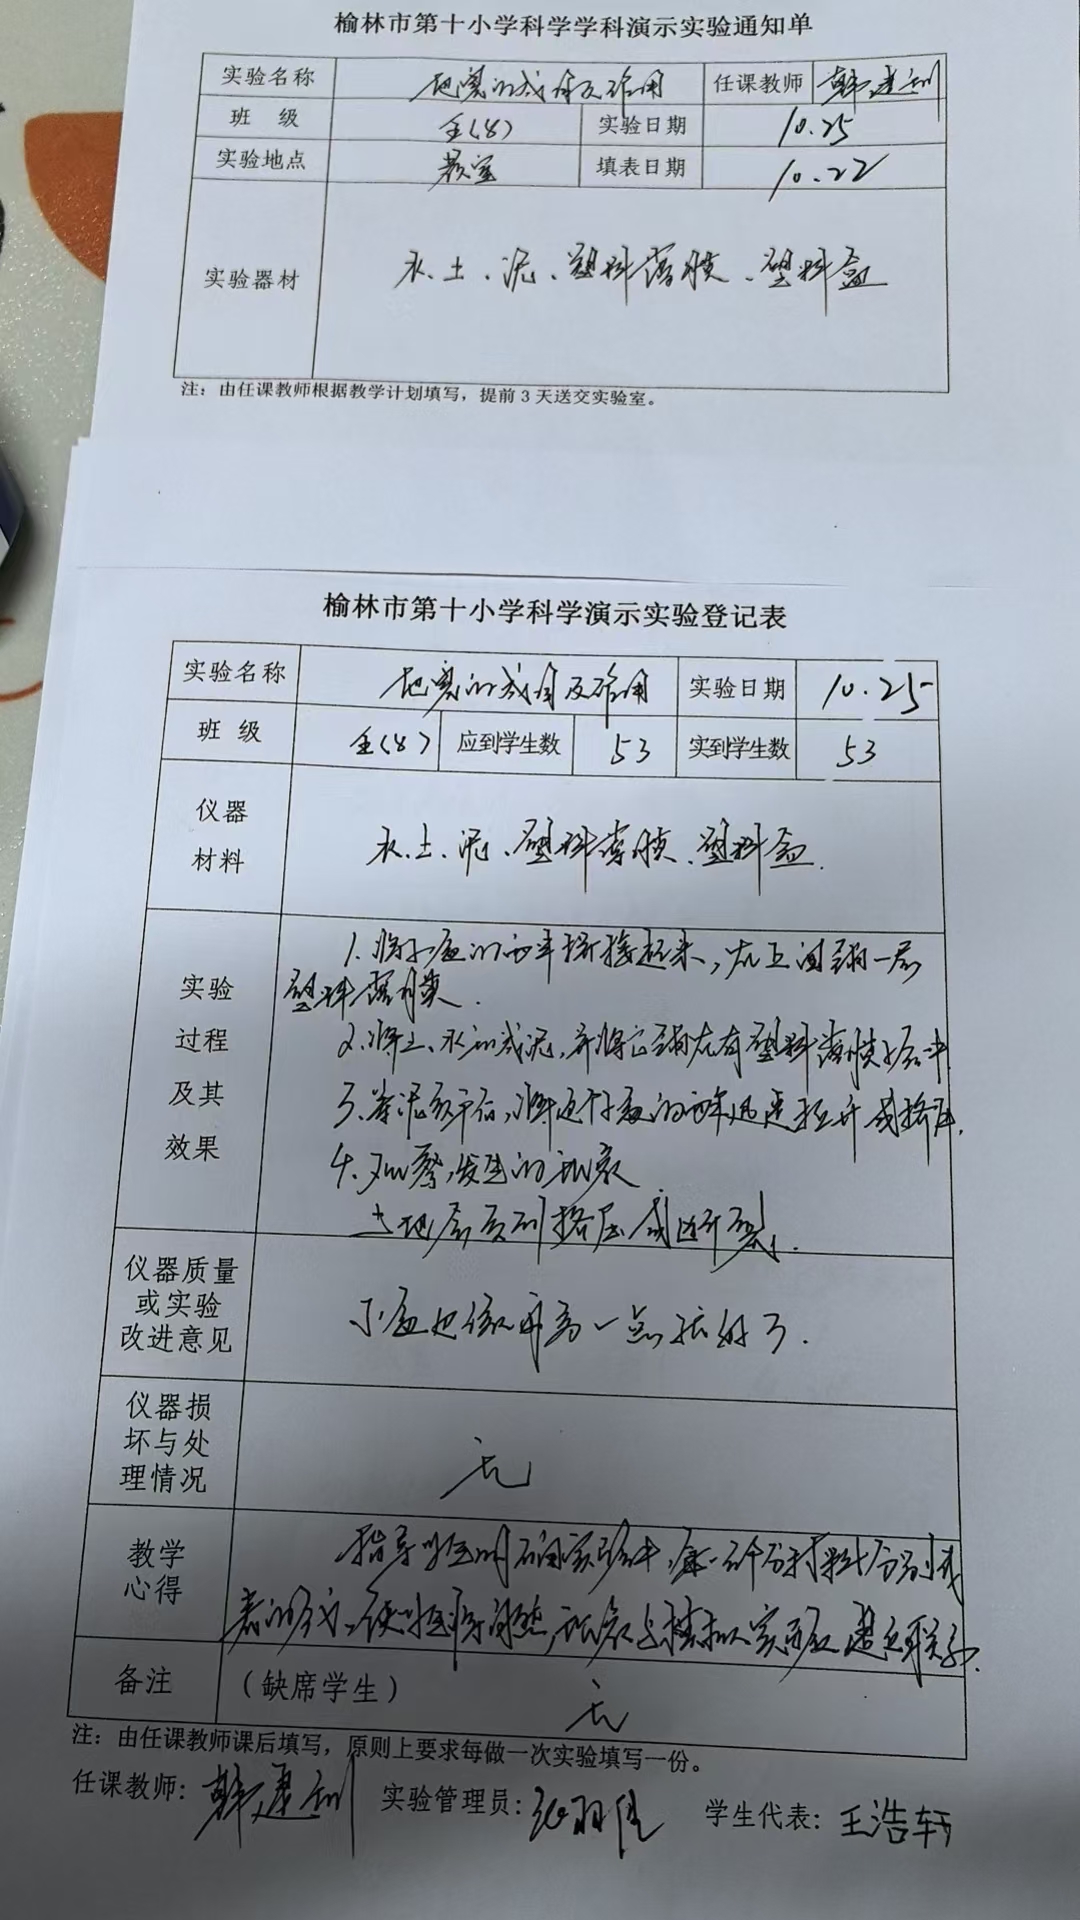 榆林市第十小学科学学科演示实验通知单
实验名称 地震的成因及作用 任课教师 韩建刚
班 级 五(8) 实验日期 10.25
实验地点 教室 填表日期 10.22
实验器材 水、土、泥、塑料薄膜、塑料盒
注：由任课教师根据教学计划填写，提前3天送交实验室。
榆林市第十小学科学演示实验登记表
实验名称 地震的成因及作用 实验日期 10.25
班 级 五(8) 应到学生数 53 实到学生数 53
仪器材料 水、土、泥、塑料薄膜、塑料盒.
实验过程及其效果
1.将小盒的两半拼接起来,在上面铺一层
塑料薄膜.
2.将土、水和成泥,并将它铺在有塑料薄膜的盒中.
3.等泥 干后,将这个小盒的两半迅速拉开或挤压.
4.观察发生的现象
土地层受到挤压或断裂.
仪器质量或实验改进意见 小盒边做再高一点就好了.
仪器损坏与处理情况 无
教学心得
指导学生明确实验中,每一个部分材料分别代
表的 ,使学生将自然现象与模拟实验 建立联系.
备注 （缺席学生） 无
注：由任课教师课后填写，原则上要求每做一次实验填写一份。
任课教师：韩建刚 实验管理员：张羽佳 学生代表：王浩轩